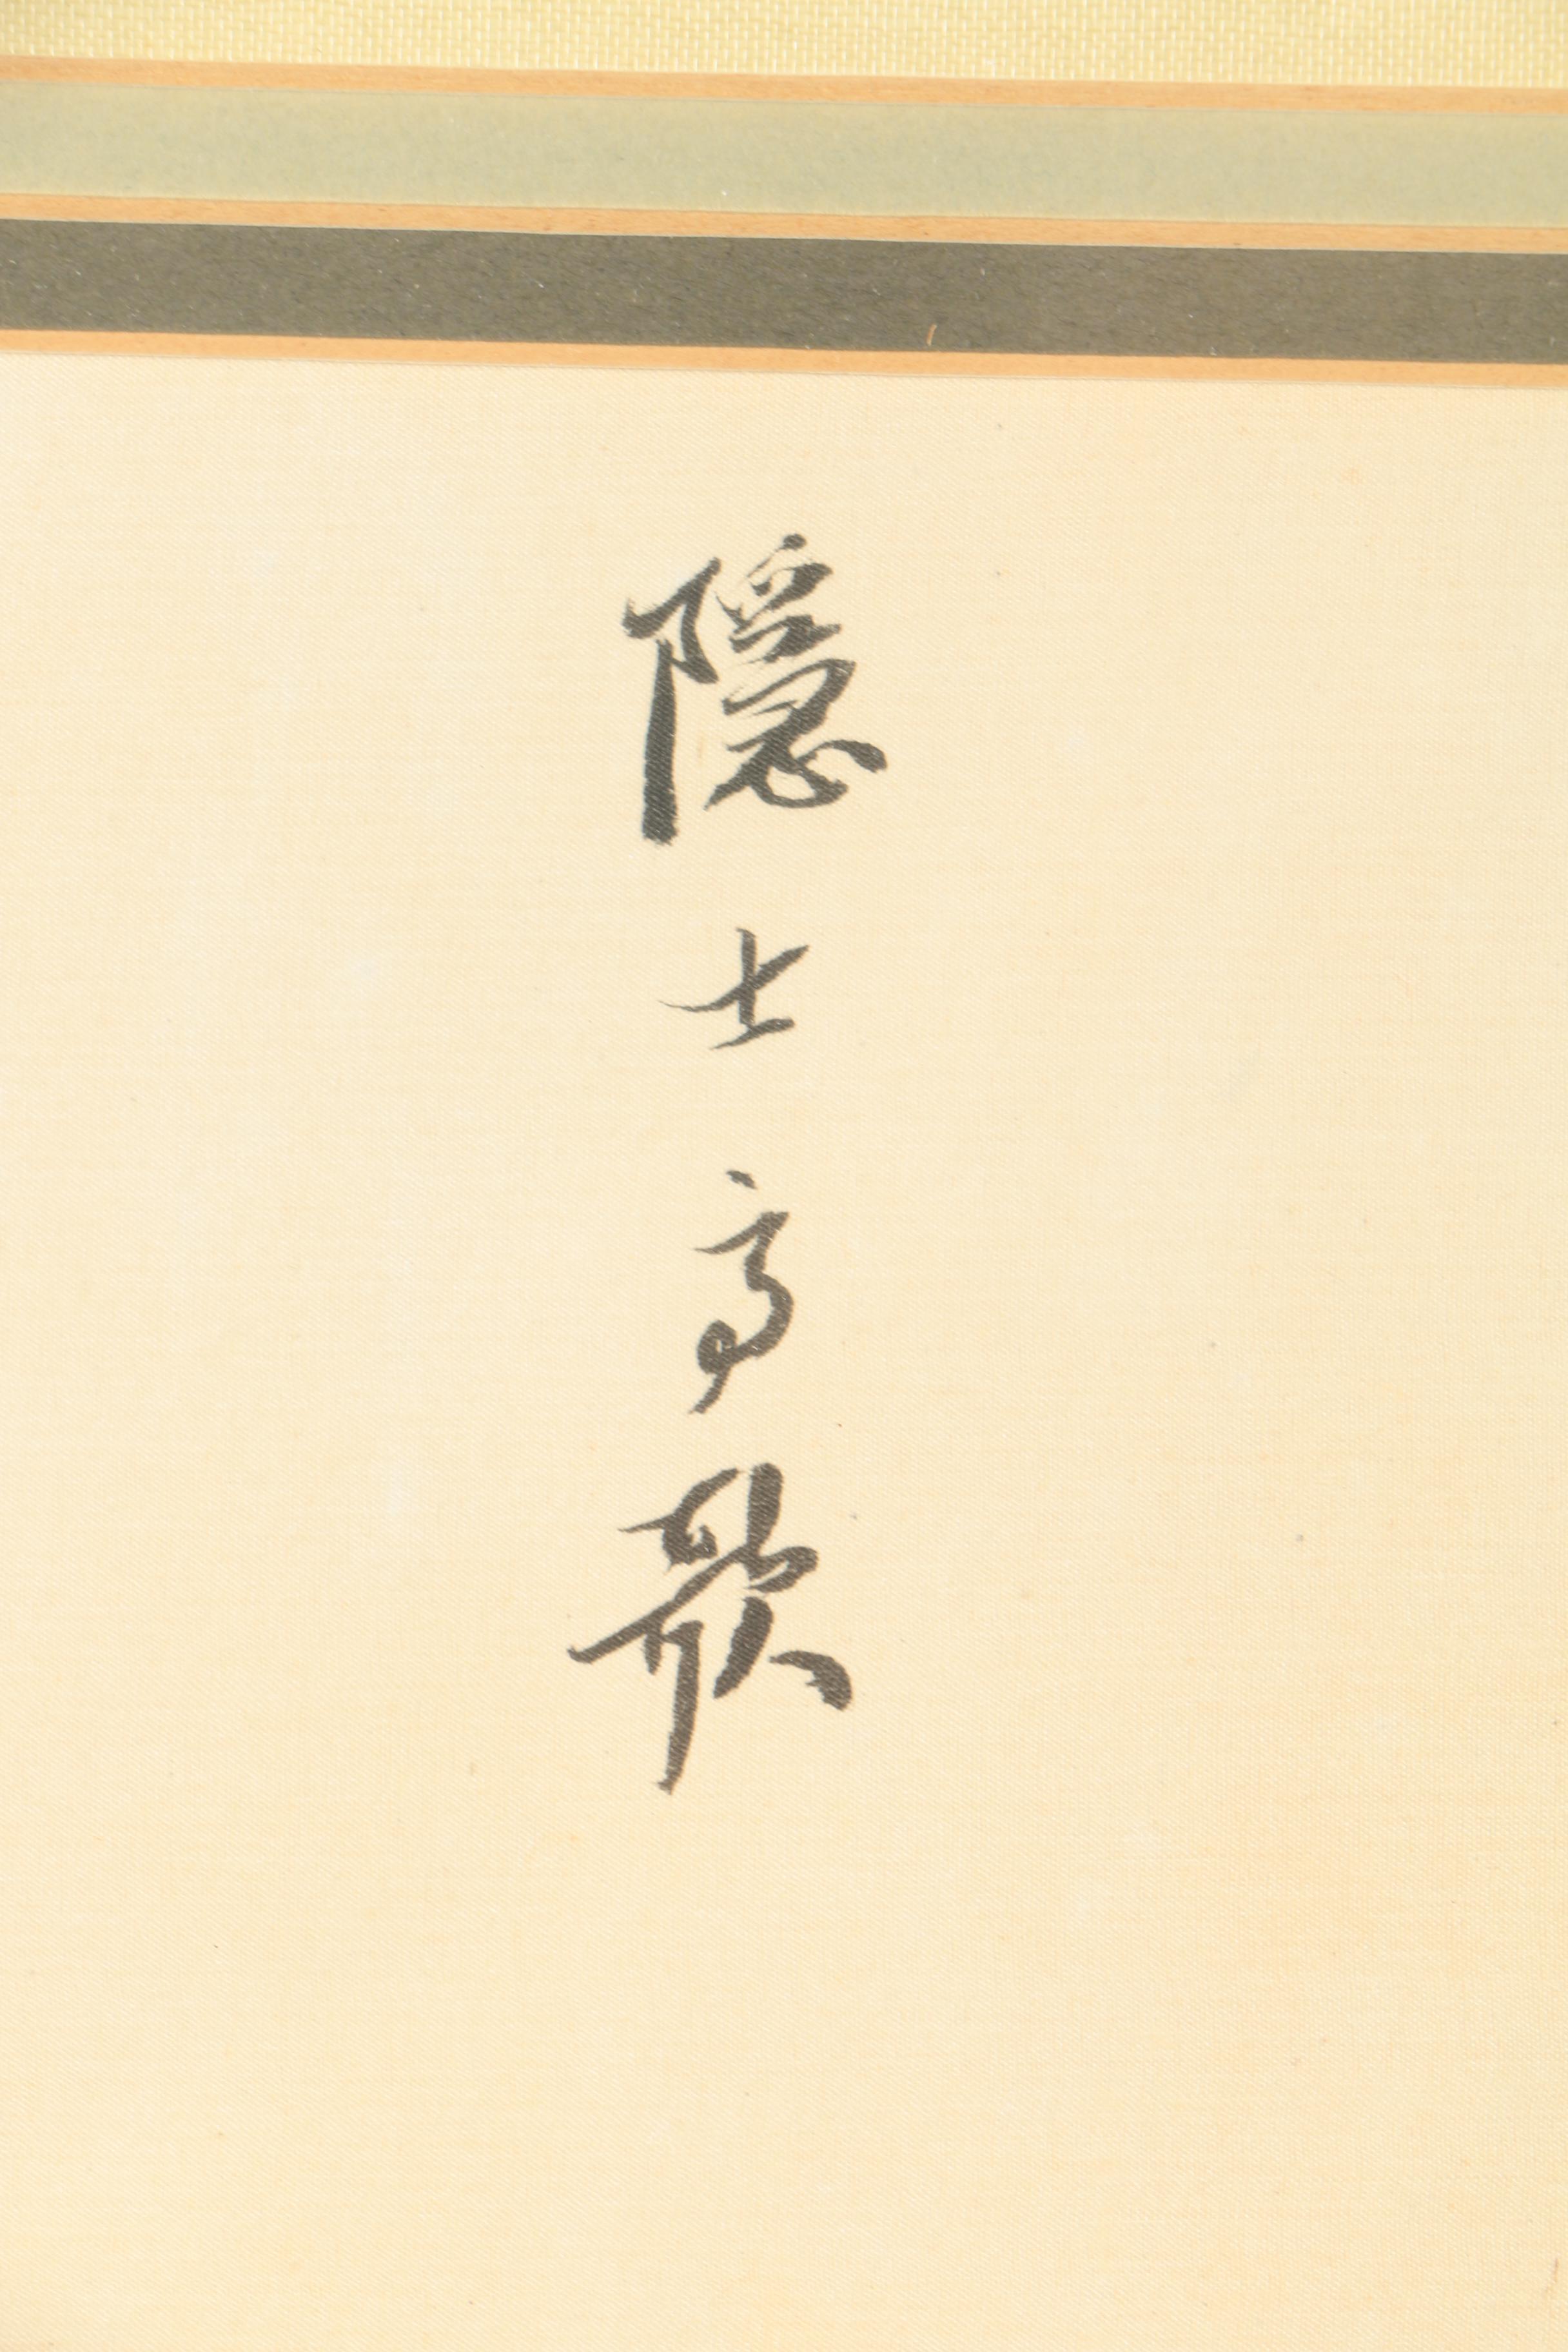 隱士高歌